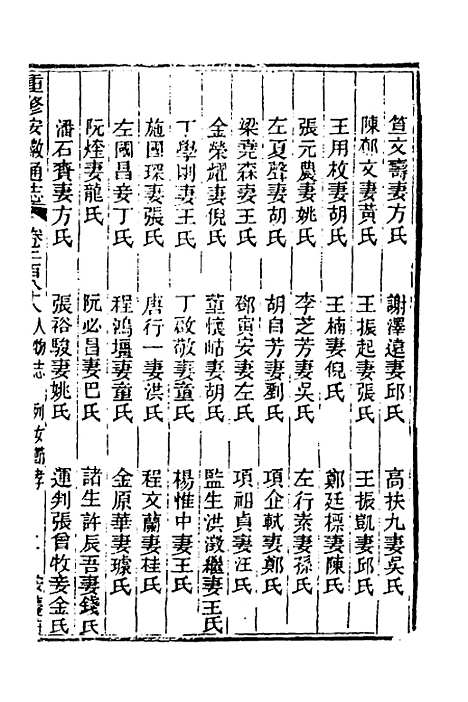 笪文壽妻方氏 謝澤遠妻邱氏 高扶九妻吳氏
陳郁文妻黃氏 王振起妻張氏 王振凱妻邱氏
王用枚妻胡氏 王楠妻倪氏 鄭廷標妻陳氏
張元慶妻姚氏 李芝芳妻吳氏 左行素妻孫氏
左夏聲妻胡氏 胡自芳妻劉氏 項企軾妻鄭氏
梁堯森妾王氏 鄧寅安妻左氏 項祖貞妻汪氏
金榮耀妻倪氏 董懷岵妻胡氏 監生洪澂繼妻王氏
丁學圃妻王氏 丁啟敬妻童氏 楊惟中妻王氏
施國琛妻張氏 唐行一妻洪氏 程文蘭妻桂氏
左國昌妾丁氏 程鴻壃妻童氏 金原華妻璩氏
阮煃妻龍氏 阮必昌妻巴氏 諸生許辰吾妻錢氏
潘石賫妻方氏 張裕駿妻姚氏 運判張曾牧妾金氏
重修安徽通志 卷二百八十八 人物志 列女節孝